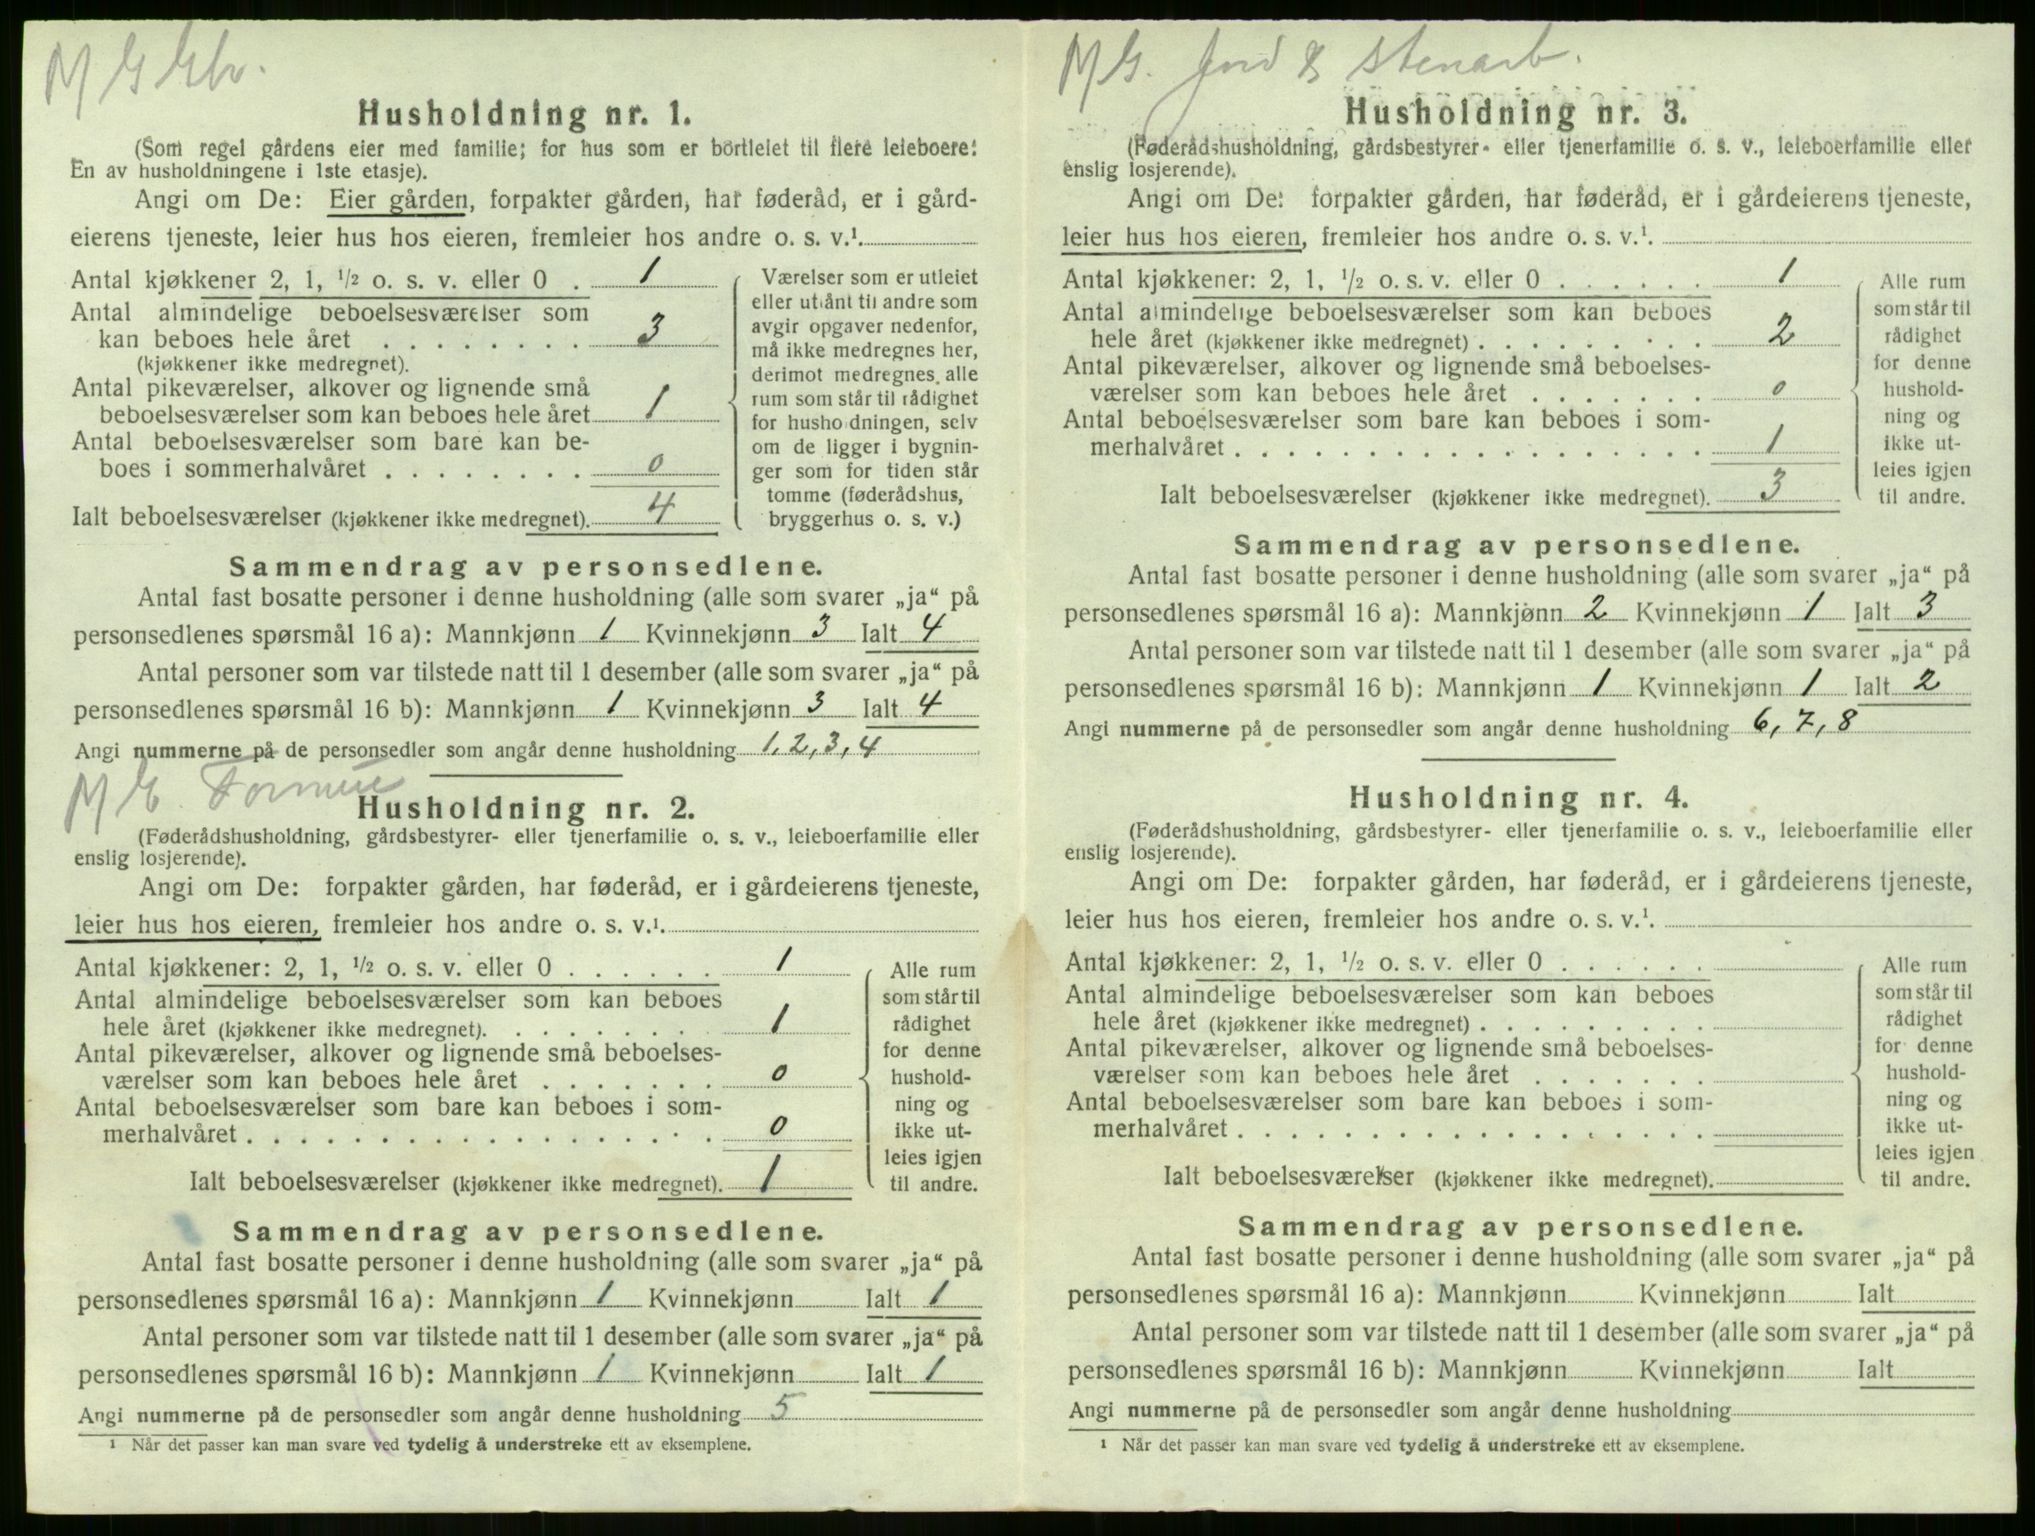 M G Gbr.
Husholdning nr. 1.
(Som regel gårdens eier med familie; for hus som er bortleiet til flere leieboere:
En av husholdningene i 1ste etasje).
Angi om De: Eier gården, forpakter gården, har føderåd, er i gård-
eierens tjeneste, leier hus hos eieren, fremleier hos andre o. s. v.¹
Antal kjøkkener 2, 1, ½ o. s. v. eller 0 . 1
Antal almindelige beboelsesværelser som
kan beboes hele året . . . . . . . . 3
(kjøkkener ikke medregnet).
Antal pikeværelser, alkover og lignende små
beboelsesværelser som kan beboes hele året 1
Antal beboelsesværelser som bare kan be-
boes i sommerhalvåret . . . . . . . . 0
Ialt beboelsesværelser (kjøkkener ikke medregnet). 4
Værelser som er utleiet
eller utlånt til andre som
avgir opgaver nedenfor,
må ikke medregnes her,
derimot medregnes alle
rum som står til rådighet
for husholdningen, selv
om de ligger i bygnin-
ger som for tiden står
tomme (føderådshus,
bryggerhus o. s. v.)
Sammendrag av personsedlene.
Antal fast bosatte personer i denne husholdning (alle som svarer „ja“ på
personsedlenes spørsmål 16 a): Mannkjønn 1 Kvinnekjønn 3 Ialt 4
Antal personer som var tilstede natt til 1 desember (alle som svarer „ja“ på
personsedlenes spørsmål 16 b): Mannkjønn 1 Kvinnekjønn 3 Ialt 4
Angi nummerne på de personsedler som angår denne husholdning 1, 2, 3, 4
M G. Formue
Husholdning nr. 2.
(Føderådshusholdning, gårdsbestyrer- eller tjenerfamilie o. s. v., leieboerfamilie eller
enslig losjerende).
Angi om De: forpakter gården, har føderåd, er i gårdeierens tjeneste,
leier hus hos eieren, fremleier hos andre o. s. v.¹.
Antal kjøkkener: 2, 1, ½ o. s. v. eller 0 . . . . . . 1
Antal almindelige beboelsesværelser som kan beboes
hele året (kjøkkener ikke medregnet). . . . . . . . 1
Antal pikeværelser, alkover og lignende små beboelses-
værelser som kan beboes hele året . . . . . . . 0
Antal beboelsesværelser som bare kan beboes i som-
merhalvåret . . . . . . . . . . . . . . . . . . 0
Ialt beboelsesværelser (kjøkkener ikke medregnet). 1
Alle rum
som står til
rådighet
for denne
hushold-
ning og
ikke ut-
leies igjen
til andre.
Sammendrag av personsedlene.
Antal fast bosatte personer i denne husholdning (alle som svarer „ja“ på
personsedlenes spørsmål 16 a): Mannkjønn 1 Kvinnekjønn Ialt 1
Antal personer som var tilstede natt til 1 desember (alle som svarer „ja“ på
personsedlenes spørsmål 16 b): Mannkjønn 1 Kvinnekjønn Ialt 1
Angi nummerne på de personsedler som angår denne husholdning 5
¹ Når det passer kan man svare ved tydelig å understreke ett av eksemplene.
M G. Jord & Stenarb.
Husholdning nr. 3.
(Føderådshusholdning, gårdsbestyrer- eller tjenerfamilie o. s. v., leieboerfamilie eller
enslig losjerende).
Angi om De: forpakter gården, har føderåd, er i gårdeierens tjeneste,
leier hus hos eieren, fremleier hos andre o. s. v.¹.
Antal kjøkkener: 2, 1, ½ o. s. v. eller 0 . . . . . . 1
Antal almindelige beboelsesværelser som kan beboes
hele året (kjøkkener ikke medregnet) . . . . . . . . . 2
Antal pikeværelser, alkover og lignende små beboelses-
værelser som kan beboes hele året . . . . . . . 0
Antal beboelsesværelser som bare kan beboes i som-
merhalvåret . . . . . . . . . . . . . . . . . . 1
Ialt beboelsesværelser (kjøkkener ikke medregnet). 3
Alle rum
som står til
rådighet
for denne
hushold-
ning og
ikke ut-
leies igjen
til andre.
Sammendrag av personsedlene.
Antal fast bosatte personer i denne husholdning (alle som svarer „ja“ på
personsedlenes spørsmål 16 a): Mannkjønn 2 Kvinnekjønn 1 Ialt 3
Antal personer som var tilstede natt til 1 desember (alle som svarer „ja“ på
personsedlenes spørsmål 16 b): Mannkjønn 1 Kvinnekjønn 1 Ialt 2
Angi nummerne på de personsedler som angår denne husholdning 6, 7, 8
Husholdning nr. 4.
(Føderådshusholdning, gårdsbestyrer- eller tjenerfamilie o. s. v., leieboerfamilie eller
enslig losjerende).
Angi om De: forpakter gården, har føderåd, er i gårdeierens tjeneste,
leier hus hos eieren, fremleier hos andre o. s. v.¹.
Antal kjøkkener: 2, 1, ½ o. s. v. eller 0 . . . . . .
Antal almindelige beboelsesværelser som kan beboes
hele året (kjøkkener ikke medregnet) . . . . . . . . .
Antal pikeværelser, alkover og lignende små beboelses-
værelser som kan beboes hele året . . . . . . .
Antal beboelsesværelser som bare kan beboes i som-
merhalvåret . . . . . . . . . . . . . . . . . .
Ialt beboelsesværelser (kjøkkener ikke medregnet).
Alle rum
som står til
rådighet
for denne
hushold-
ning og
ikke ut-
leies igjen
til andre.
Sammendrag av personsedlene.
Antal fast bosatte personer i denne husholdning (alle som svarer „ja“ på
personsedlenes spørsmål 16 a): Mannkjønn Kvinnekjønn Ialt
Antal personer som var tilstede natt til 1 desember (alle som svarer „ja“ på
personsedlenes spørsmål 16 b): Mannkjønn Kvinnekjønn Ialt
Angi nummerne på de personsedler som angår denne husholdning
¹ Når det passer kan man svare ved tydelig å understreke ett av eksemplene.